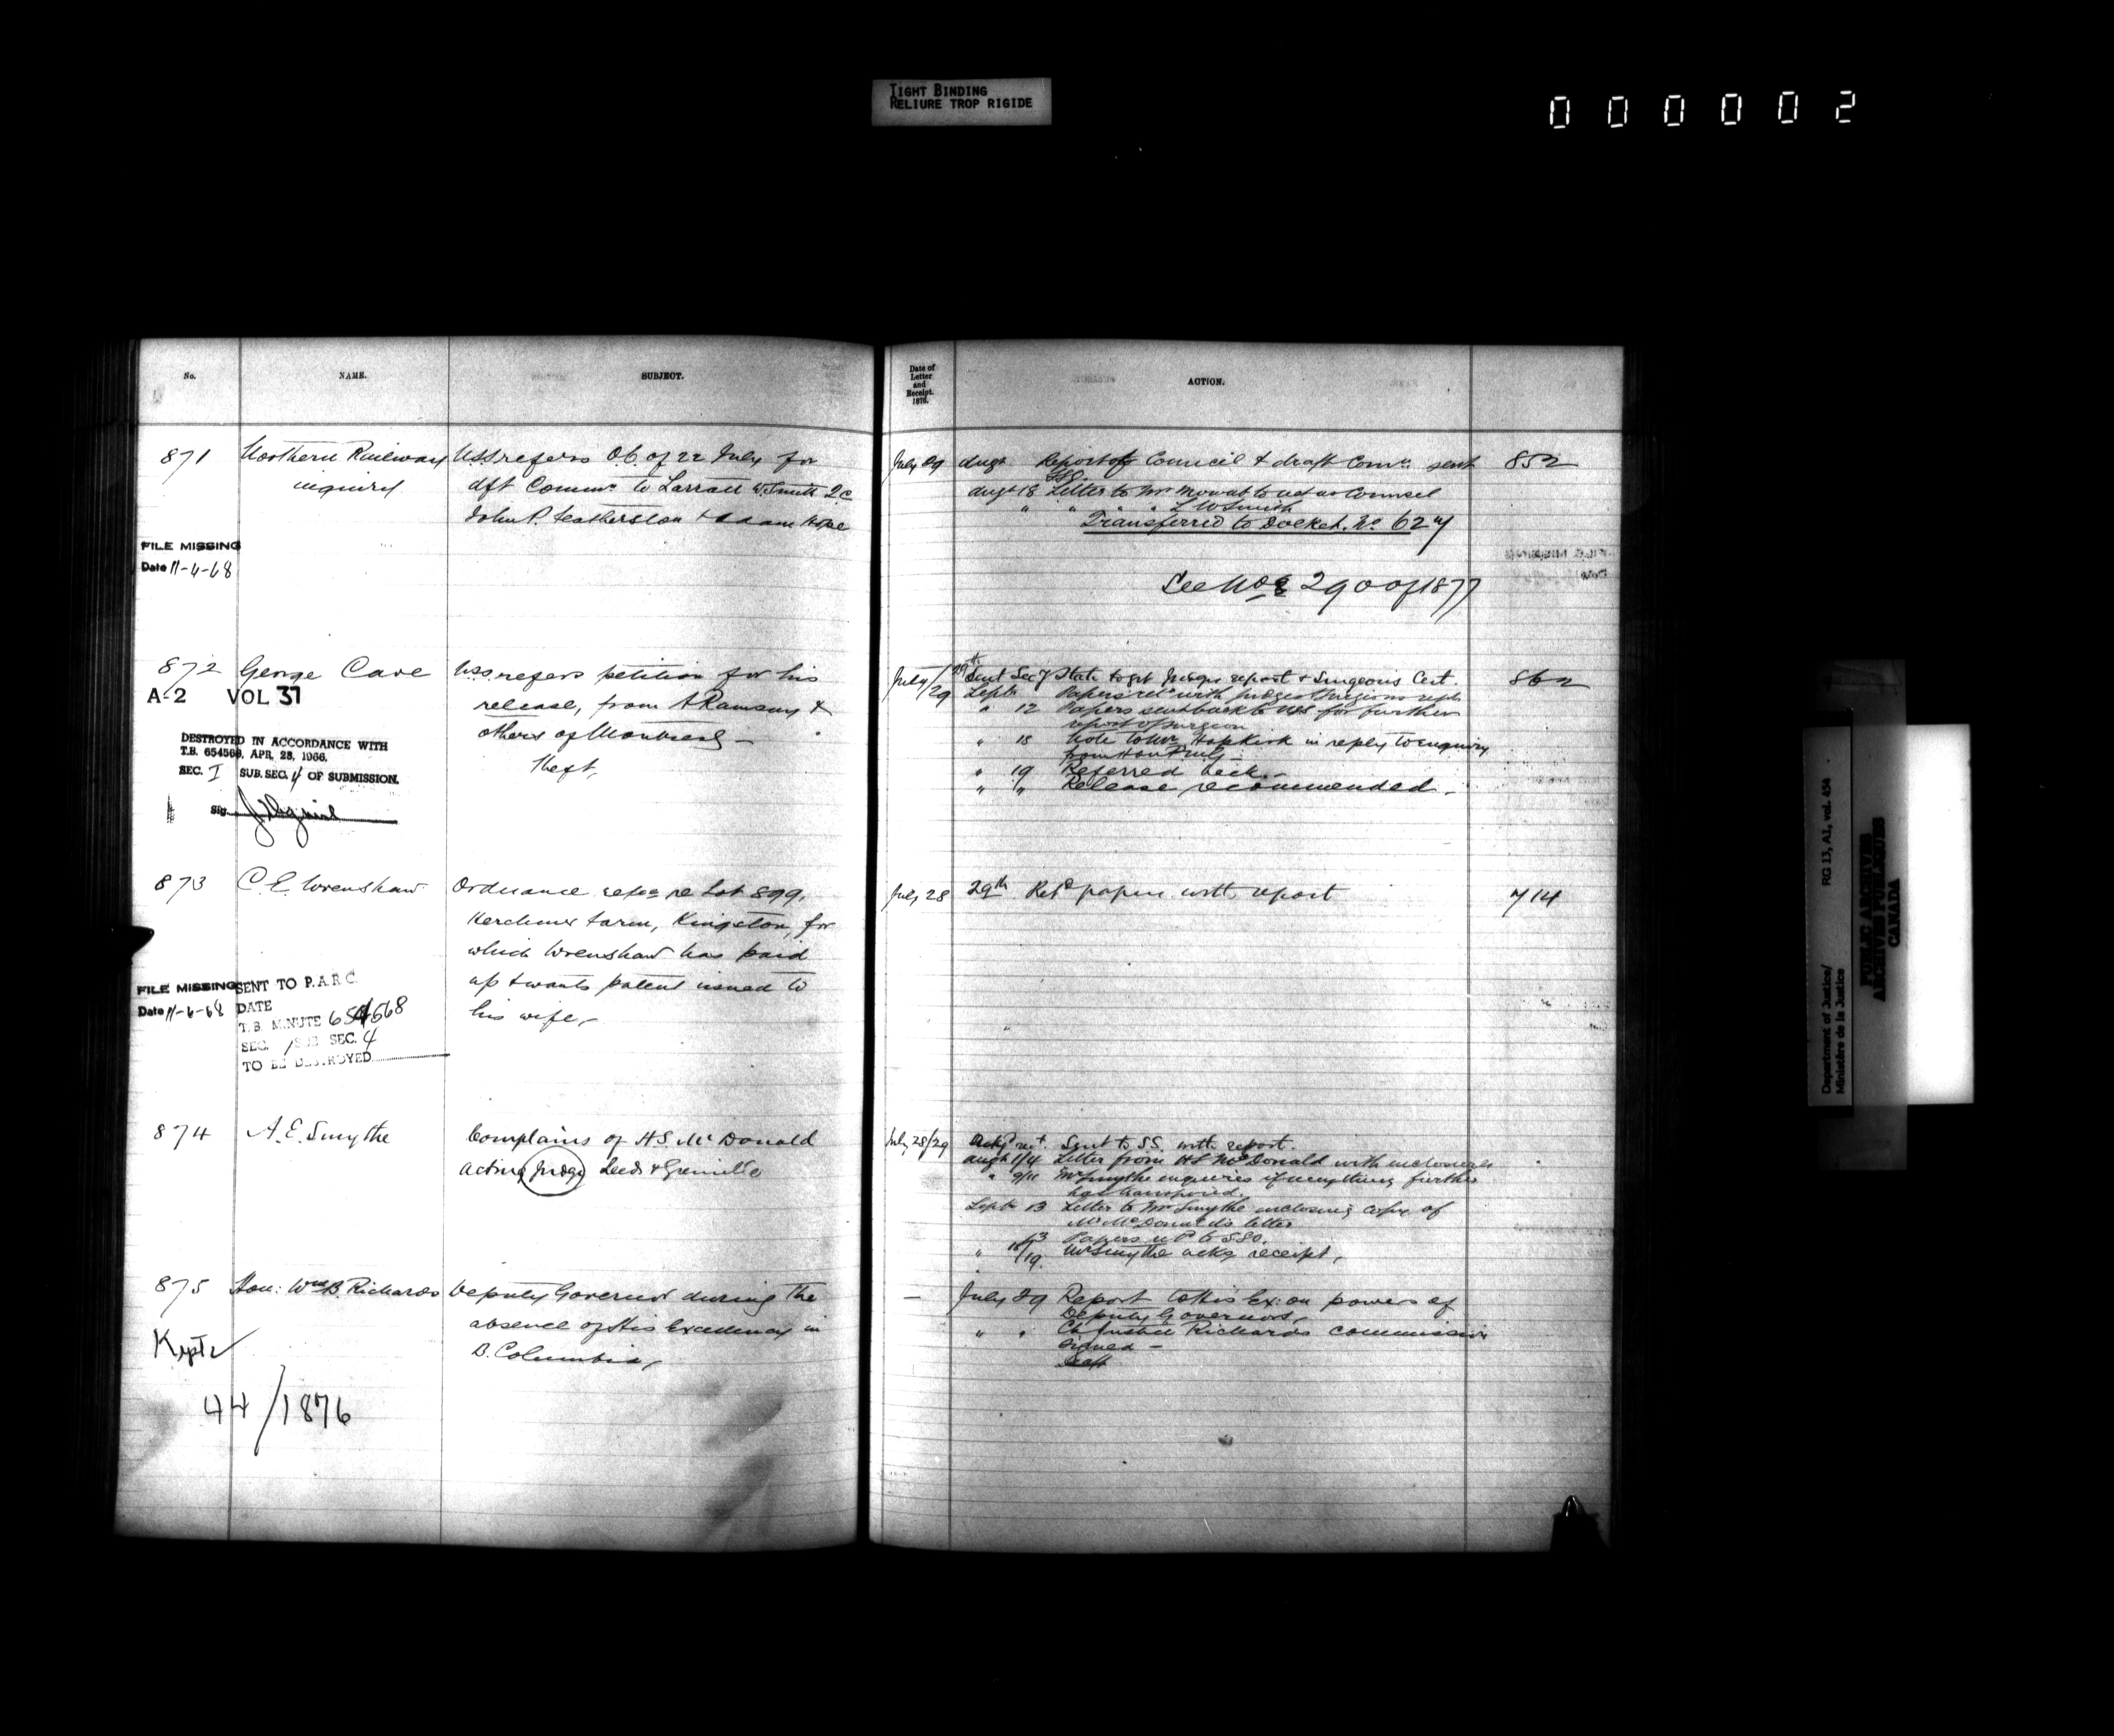 TIGHT BINDING
RELIURE TROP RIGIDE
000002
No. NAME. SUBJECT.
871 Northern Railway USS refers O.C. of 22 July for
inquiry dft Commn to Larratt W. Smith Q.C.
John P. Featherston & Adam Hope
FILE MISSING
Date 11-6-68
872 George Cave USS refers petition for his
A-2 VOL 37 release, from A Ramsay &
others of Montreal —
Theft,
DESTROYED IN ACCORDANCE WITH
T.B. 654568, APR. 28, 1966.
SEC. I SUB. SEC. 4 OF SUBMISSION.
Sig.
873 C. E. Wrenshaw Ordnance re Lot 899,
Herchmer Farm, Kingston, for
which Wrenshaw has paid
up & wants patent issued to
his wife,—
FILE MISSING
Date 11-6-68
SENT TO P.A.R.C.
DATE
T.B. MINUTE 654568
SEC. 1 SUB SEC. 4
TO BE DESTROYED
874 A. E. Smythe Complains of H.S. McDonald
acting Judge Leeds & Grenville
875 Hon: Wm B. Richards Deputy Governor during the
absence of His Excellency in
B. Columbia,
Kept
44/1876
Date of
Letter
and
Receipt.
1876.
ACTION.
July 29 Augt Report of Council & draft Comn: sent 852
SSC.
Augt 18 Letter to Mr Mowat to act as Counsel
" " " " L W Smith
Transferred to Docket. No 627
See No 290 of 1877
July/29 29th Sent Secy State to get Judges report & Surgeons Cert. 862
Septr Papers retd with Judges & Surgeons repts
" 12 Papers sent back to USS for further
report of Surgeon
" 18 Note to Mr Hopkirk in reply to enquiry
from Hon
" 19 Referred back —
" " Release recommended. —
July 28 29th Retd papers with report 714
July 28/29 Sent to SS. with report.
Augt 1/4 Letter from H S McDonald with inclosures
" 9/11 Mr Smythe enquires if anything further
has transpired.
Septr 13 Letter to Mr Smythe inclosing copy of
Mr McDonald's letter
" 13 Papers to SSC.
" 18/19. Mr Smythe acks receipt,
— July 29 Report to His Ex: on powers of
Deputy Governors,
" " Ch Justice Richards commission
signed —
Department of Justice/
Ministère de la Justice
RG 13, A1, vol. 454
PUBLIC ARCHIVES
ARCHIVES PUBLIQUES
CANADA